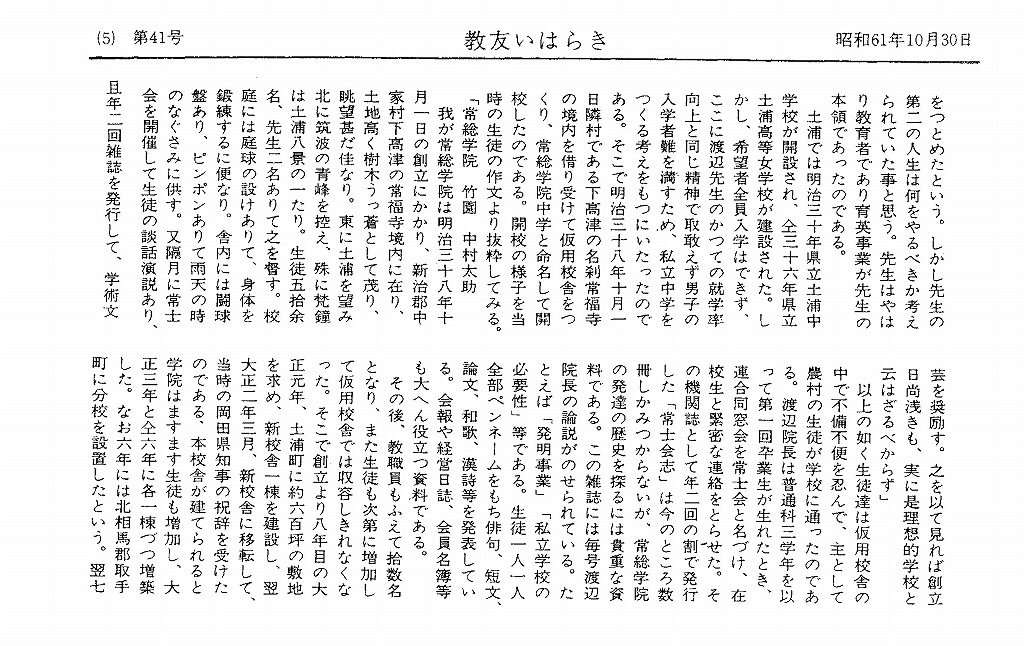 (5) 第41号
教友いはらき
昭和61年10月30日
をつとめたという。しかし先生の
第二の人生は何をやるべきか考え
られていた事と思う。先生はやは
り教育者であり育英事業が先生の
本領であったのである。
土浦では明治三十年県立土浦中
学校が開設され、仝三十六年県立
土浦高等女学校が建設された。し
かし、希望者全員入学はできず、
ここに渡辺先生のかつての就学率
向上と同じ精神で取敢えず男子の
入学者難を満すため、私立中学を
つくる考えをもつにいたったので
ある。そこで明治三十八年十月一
日隣村である下高津の名刹常福寺
の境内を借り受けて仮用校舎をつ
くり、常総学院中学と命名して開
校したのである。開校の様子を当
時の生徒の作文より抜粋してみる。
「常総学院 竹園 中村太助
我が常総学院は明治三十八年十
月一日の創立にかかり、新治郡中
家村下高津の常福寺境内に在り、
土地高く樹木うっ蒼として茂り、
眺望甚だ佳なり。東に土浦を望み
北に筑波の青峰を控え、殊に梵鐘
は土浦八景の一たり。生徒五拾余
名、先生二名ありて之を督す。校
庭には庭球の設けありて、身体を
鍛練するに便なり。舎内には闘球
盤あり、ピンポンありて雨天の時
のなぐさみに供す。又隔月に常士
会を開催して生徒の談話演説あり、
且年二回雑誌を発行して、学術文
芸を奨励す。之を以て見れば創立
日尚浅きも、実に是理想的学校と
云はざるべからず」
以上の如く生徒達は仮用校舎の
中で不備不便を忍んで、主として
農村の生徒が学校に通ったのであ
る。渡辺院長は普通科三学年を以
って第一回卒業生が生れたとき、
連合同窓会を常士会と名づけ、在
校生と緊密な連絡をとらせた。そ
の機関誌として年二回の割で発行
した「常士会志」は今のところ数
冊しかみつからないが、常総学院
の発達の歴史を探るには貴重な資
料である。この雑誌には毎号渡辺
院長の論説がのせられている。た
とえば「発明事業」「私立学校の
必要性」等である。生徒一人一人
全部ペンネームをもち俳句、短文、
論文、和歌、漢詩等を発表してい
る。会報や経営日誌、会員名簿等
も大へん役立つ資料である。
その後、教職員もふえて拾数名
となり、また生徒も次第に増加し
て仮用校舎では収容しきれなくな
った。そこで創立より八年目の大
正元年、土浦町に約六百坪の敷地
を求め、新校舎一棟を建設し、翌
大正二年三月、新校舎に移転して、
当時の岡田県知事の祝辞を受けた
のである、本校舎が建てられると
学院はますます生徒も増加し、大
正三年と仝六年に各一棟づつ増築
した。なお六年には北相馬郡取手
町に分校を設置したという。翌七